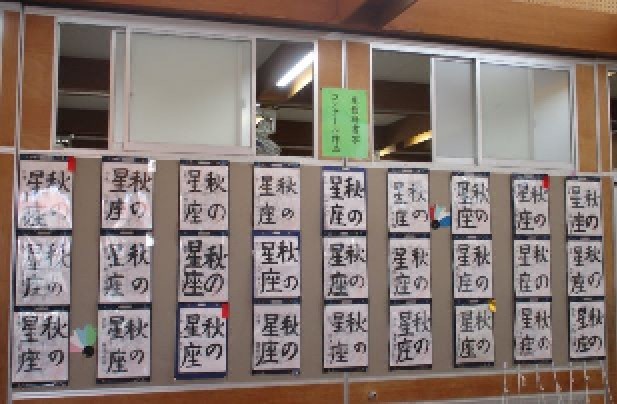 コンクール作品
秋の
星座
秋の
星座
秋の
星座
秋の
星座
秋の
星座
秋の
星座
秋の
星座
秋の
星座
秋の
星座
秋の
星座
秋の
星座
秋の
星座
秋の
星座
秋の
星座
秋の
星座
秋の
星座
秋の
星座
秋の
星座
秋の
星座
秋の
星座
秋の
星座
秋の
星座
秋の
星座
秋の
星座
秋の
星座
秋の
星座
秋の
星座